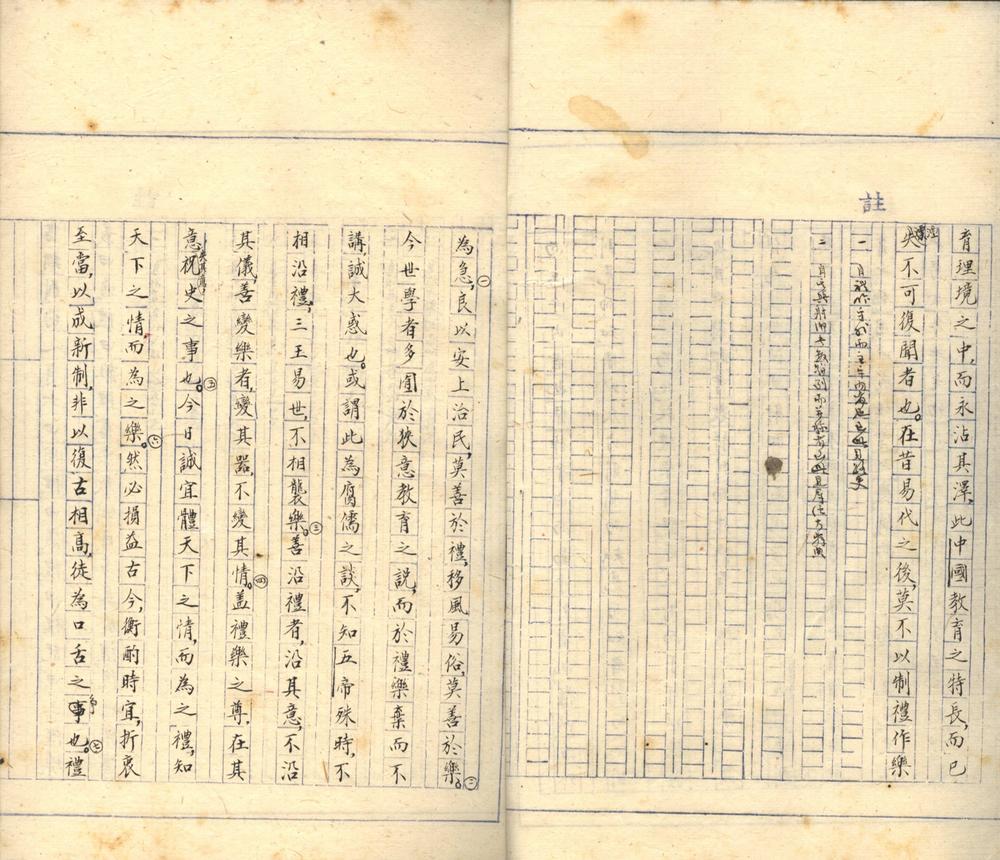 育理境之中，而永沾其澤，此中國教育之特長，而已
失不可復聞者也。在昔易代之後，莫不以制禮作樂
註
一
二
為急，㊀良以安上治民，莫善於禮，移風易俗，莫善於樂。㊁
今世學者多囿於狹意教育之說，而於禮樂棄而不
講，誠大惑也。或謂此為腐儒之談，不知五帝殊時，不
相沿禮，三王易世，不相襲樂。㊂善沿禮者，沿其意，不沿
其儀，善變樂者，變其器，不變其情。㊃蓋禮樂之尊，在其
意，祝史之事也。㊄今日誠宜體天下之情，而為之禮，知
天下之情，而為之樂。㊅然必損益古今，衡酌時宜，折衷
至當，以成新制，非以復古相高，徒為口舌之爭也。㊆禮